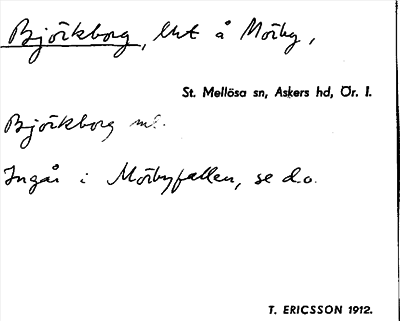 Björkborg, lht å Mörby,
St. Mellösa sn, Askers hd, Ör. l.
Björkborg
Ingår i Mörbyfallen, se d.o.
T. ERICSSON 1912.